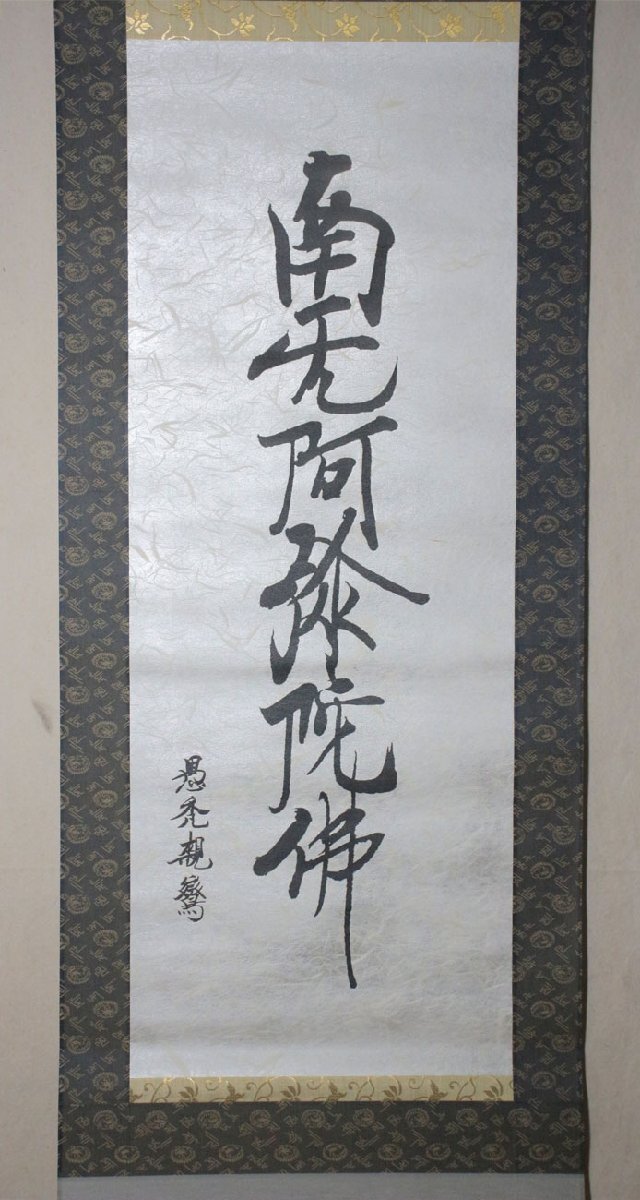 南无阿弥陀佛
愚禿親鸞